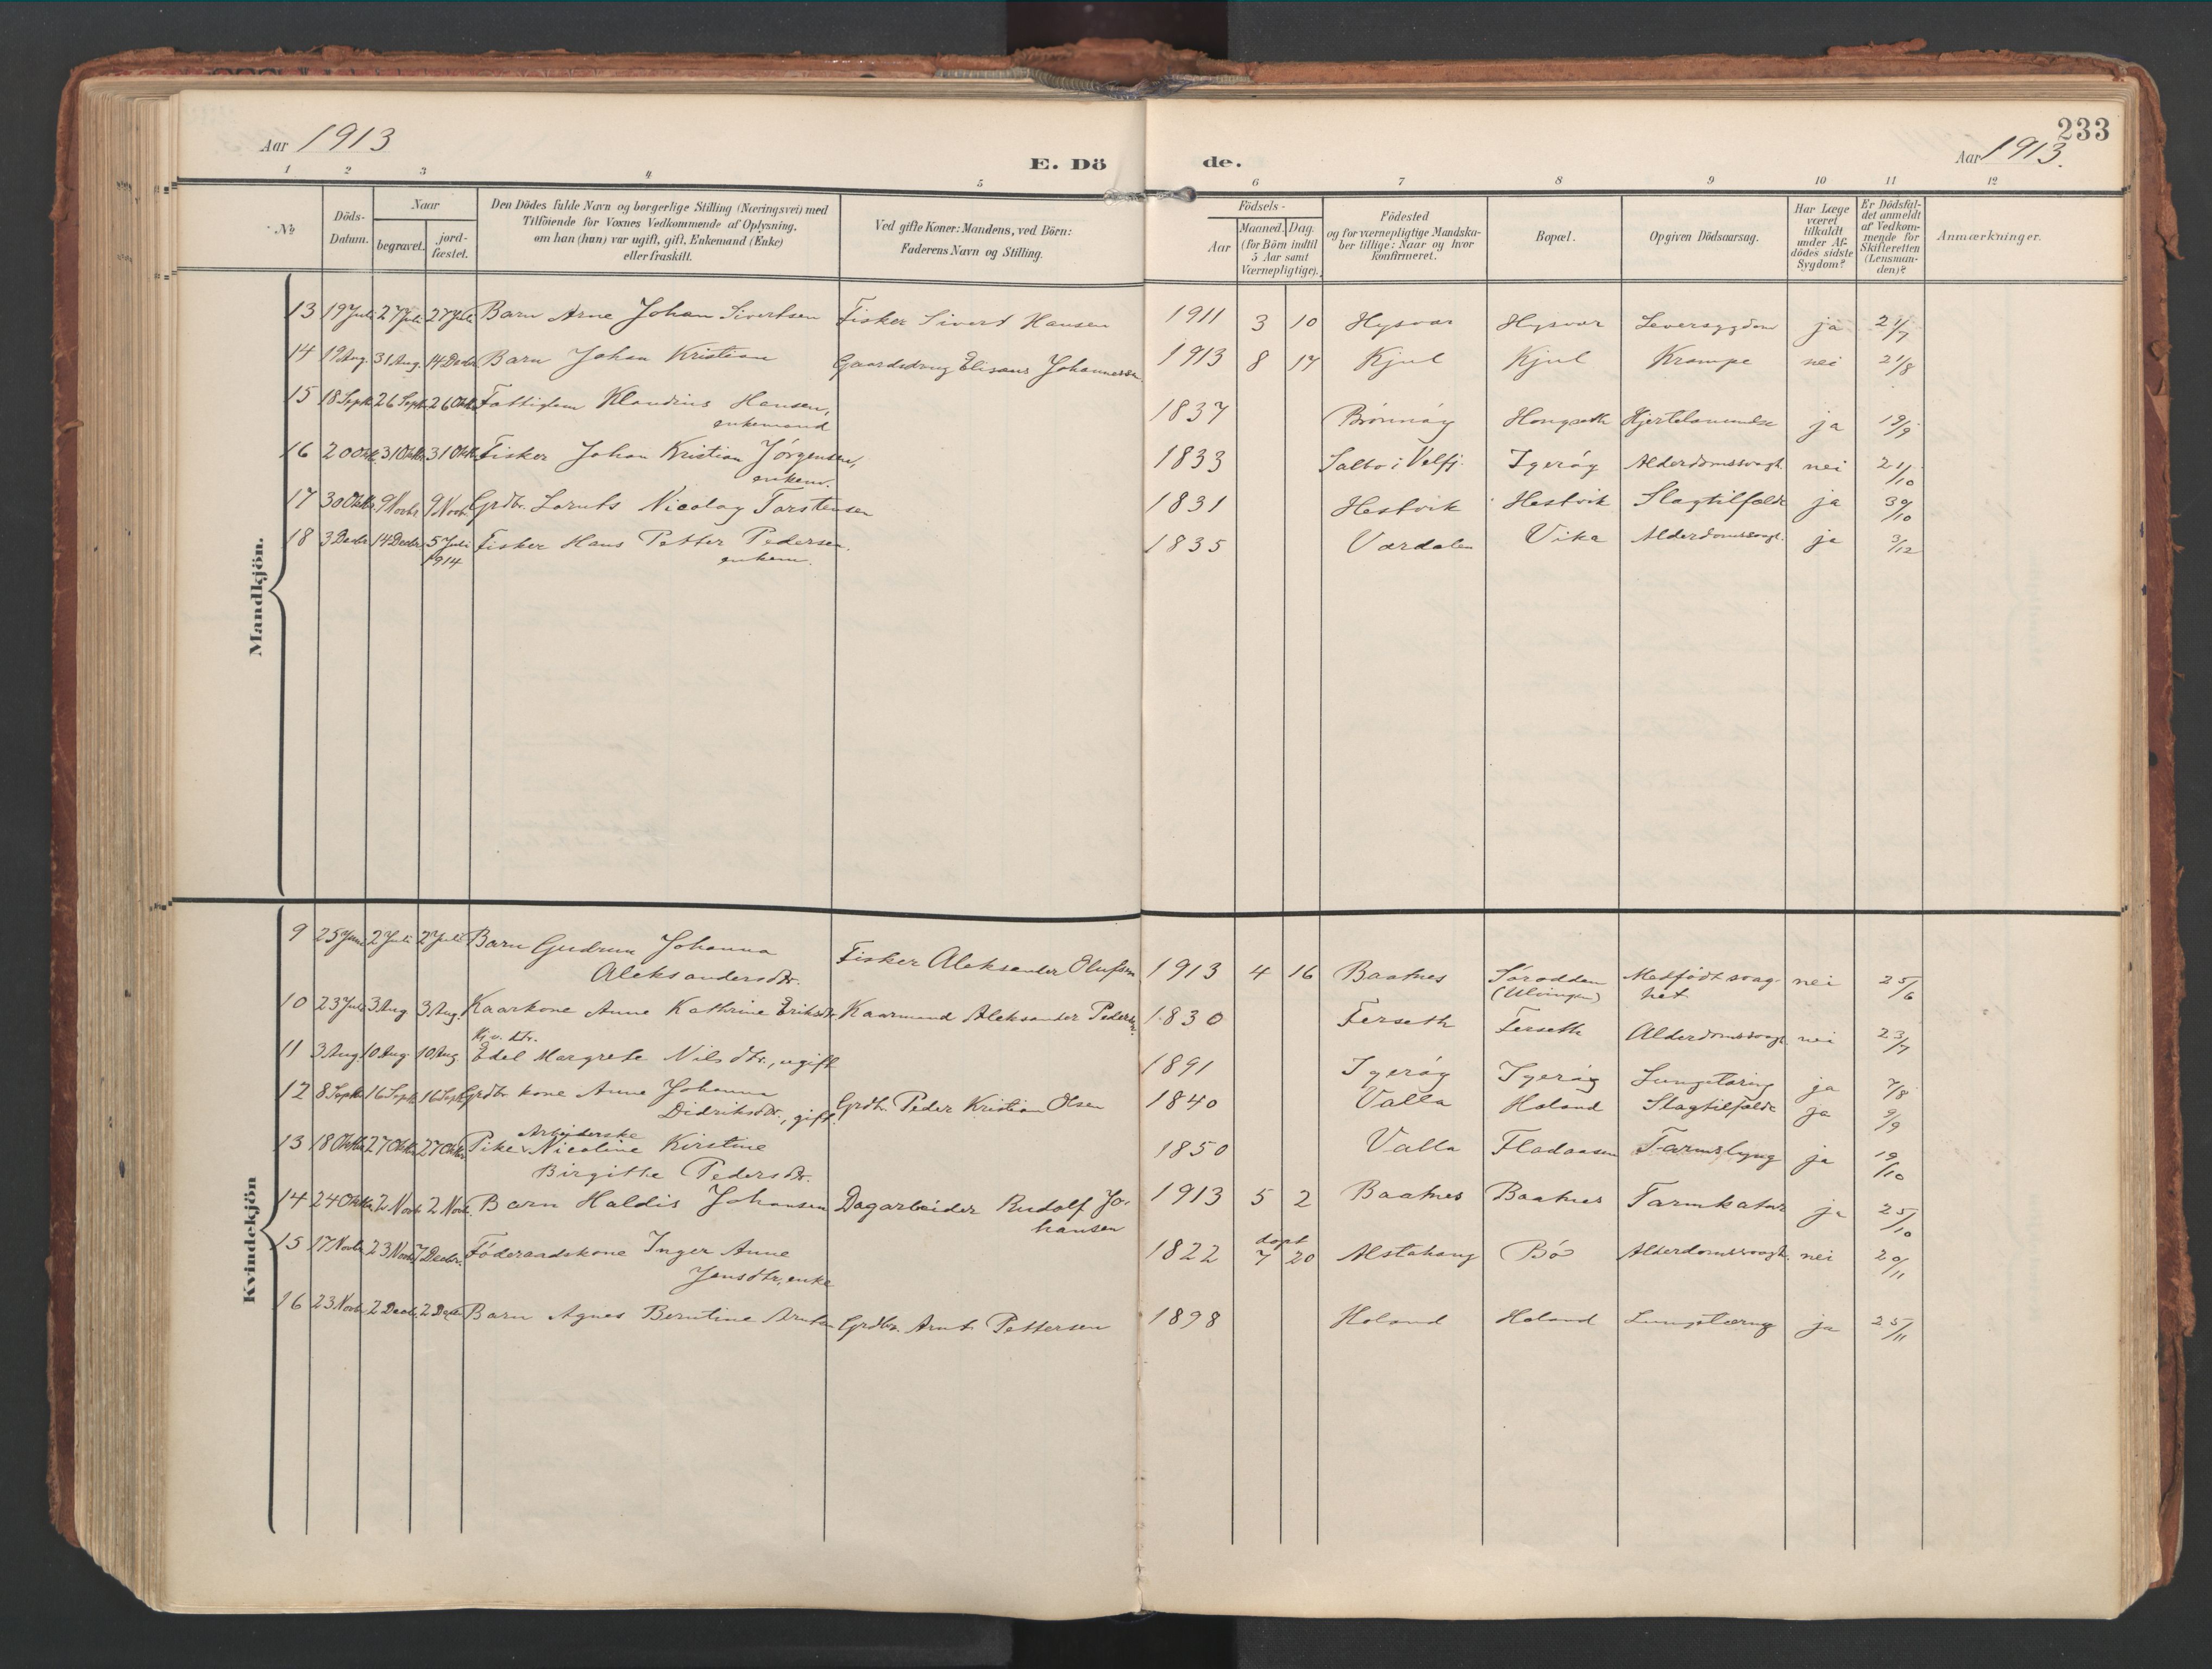 233
Aar 1913
E. Dö de.
Aar 1913.
1 2 3 4 5 6 7 8 9 10 11 12
No
Döds-Datum.
Naar
begravet.
jord-fæstet.
Den Dödes fulde Navn og borgerlige Stilling (Næringsvei) med
Tilföiende for Voxnes Vedkommende af Oplysning,
om han (hun) var ugift, gift, Enkemand (Enke)
eller fraskilt.
Ved gifte Koner: Mandens, ved Börn:
Faderens Navn og Stilling.
Födsels-
Aar
Maaned. Dag.
(for Börn indtil
5 Aar samt
Værnepligtige).
Födested
og for værnepligtige Mandska-
ber tillige: Naar og hvor
konfirmeret.
Bopæl.
Opgiven Dödsaarsag.
Har Læge
været
tilkaldt
under Af-
dödes sidste
Sygdom?
Er Dödsfal-
det anmeldt
af Vedkom-
mende for
Skifteretten
(Lensman-
den)?
Anmærkninger.
Mandkjön.
13 19 Juli 27 Juli 27 Juli Barn Arne Johan Sivertsen Fisker Sivert Hansen 1911 3 10 Hysvær Hysvær Leversygdom ja 21/7
14 19 Aug. 31 Aug. 14 Decbr Barn Johan Kristian Gaardsdreng Eliseus Johannessen 1913 8 17 Kjul Kjul Krampe nei 21/8
15 18 Septb 26 Septb 26 Oktbr Fattiglem Klaudius Hansen, 1837 Brönnöy Hongseth Hjertelammelse ja 19/9
enkemand
16 20 Oktb. 31 Oktbr. 31 Oktbr Fisker Johan Kristian Jörgensen, 1833 Salbo i Velfj. Igeröy Alderdomssvagh. nei 21/10
enkem.
17 30 Oktbr. 9 Novbr 9 Novbr. Grdbr. Lornts Nicolay Torstensen 1831 Hestvik Hestvik Slagtilfælde ja 30/10
18 3 Decbr 14 Decbr 5 Juli Fisker Hans Petter Pedersen. 1835 Værdalen Vika Alderdomssvagh. ja 3/12
1914 enkem.
Kvindekjön
9 25 Juni 2 Juli 2 Juli Barn Gudrun Johanna Fisker Aleksander Olufsen 1913 4 16 Baatnes Sörodden Medfödt svag- nei 25/6
Aleksandersdtr. (Ulvingen) het
10 23 Juli 3 Aug 3 Aug. Kaarkone Anne Kathrine Eriksdtr. Kaarmand Aleksander Peders. 1830 Ferseth Ferseth Alderdomssvagh. nei 23/7
11 3 Aug. 10 Aug 10 Aug. Edel Margrete Nilsdtr., ugift 1891 Igeröy Igeröy Lungetæring ja 7/8
12 8 Septb 16 Septb 16 Septb Grdbr kone Anne Johanna Grdbr. Peder Kristian Olsen 1840 Valla Holand Slagtilfælde ja 9/9
Didriksdtr., gift.
Arbeiderske
13 18 Oktbr 27 Oktbr. 27 Oktbr. Pike Nicoline Kirstine 1850 Valla Fladaasen Tarmslyng ja 19/10
Birgithe Pedersdtr.
14 24 Oktbr. 2 Novb 2 Novb. Barn Haldis Johansen Dagarbeider Rudolf Jo- 1913 5 2 Baatnes Baatnes Tarmkatar ja 25/10
hansen
döpt
15 17 Novbr. 23 Novbr 7 Decbr. Föderaadskone Inger Anne 1822 7 20 Alstahaug Bö Alderdomssvagh. nei 20/11
Jensdtr, enke
16 23 Novbr. 2 Decbr. 2 Decbr Barn Agnes Berntine Arntsen Grdbr. Arnt Pettersen 1898 Holand Holand Lungetæring ja 25/11